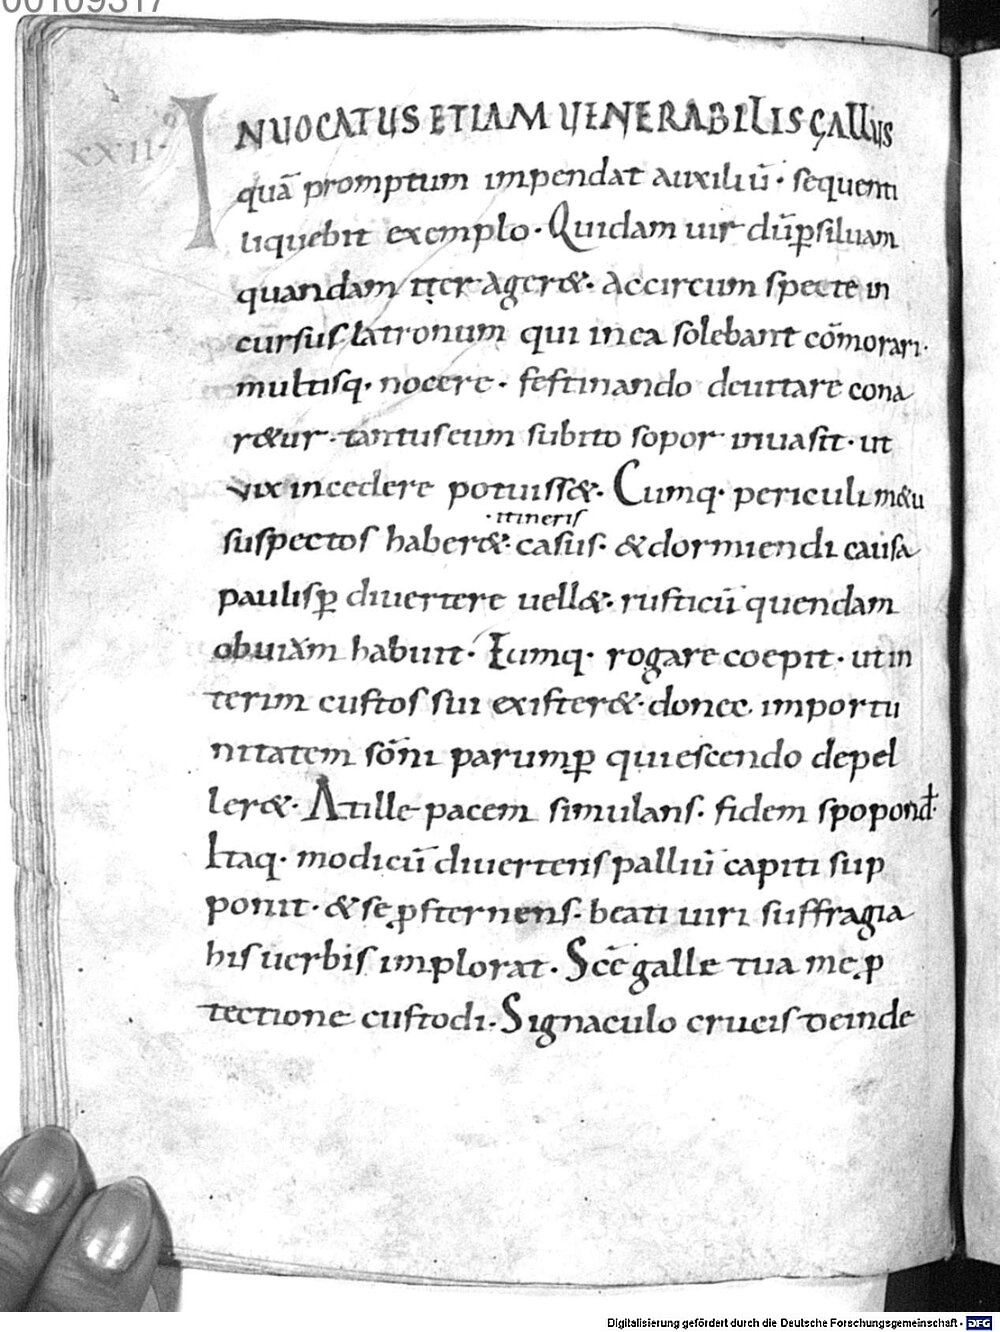 00109317
XXII·
INUOCATUS ETIAM UENERABILIS GALLUS
quā promptum impendat auxiliū· sequenti
liquebit exemplo· Quidam uir dū p̄ siluam
quandam iter ager&· ac circum specte in
cursus latronum qui in ea solebant cōmorari·
multisq· nocere· festinando deuitare cona
r&ur· tantus eum subito sopor inuasit· ut
uix incedere potuiss&· Cumq· periculi m&u
·itineris
suspectos haber& casus· & dormiendi causa
paulisp̄ diuertere uell&· rusticū quendam
obuiam habuit· Eumq· rogare coepit· ut in
terim custos sui exister&· donec importu
nitatem sōni parump̄ quiescendo depel
ler&· At ille pacem simulans· fidem spopond̄·
Itaq· modicū diuertens palliū capiti sup
ponit· & se p̱sternens· beati uiri suffragia
his uerbis implorat· Sc̄e galle tua me p̱
tectione custodi· Signaculo crucis deinde
Digitalisierung gefördert durch die Deutsche Forschungsgemeinschaft - DFG